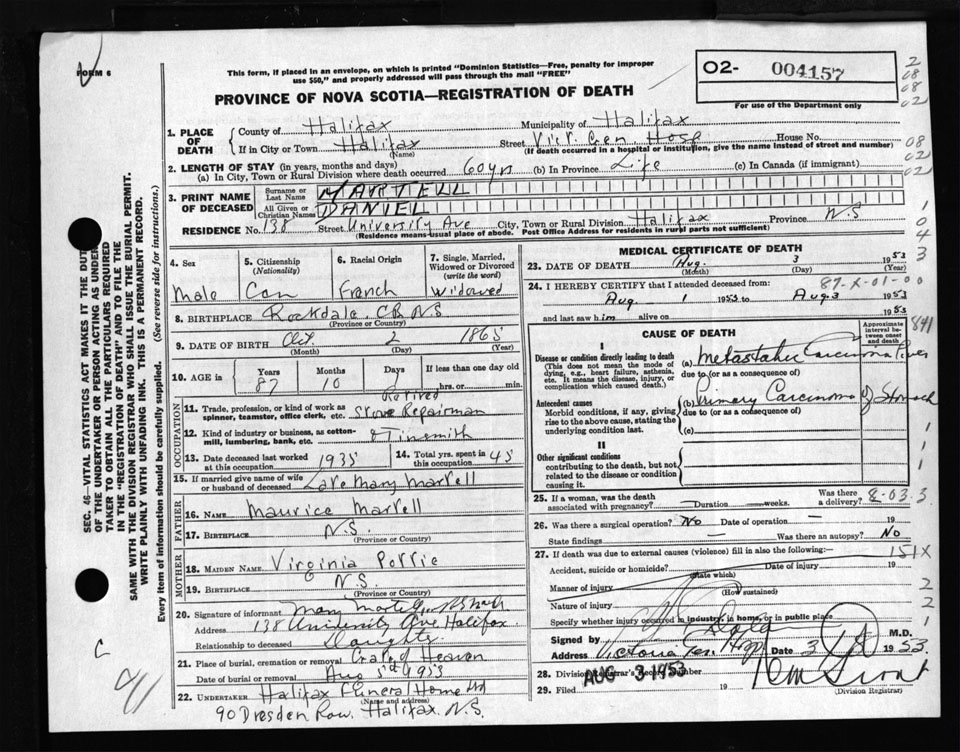 FORM 6
This form, if placed in an envelope, on which is printed "Dominion Statistics—Free, penalty for improper
use $50," and properly addressed will pass through the mail "FREE"
PROVINCE OF NOVA SCOTIA—REGISTRATION OF DEATH
02- 004157
For use of the Department only
2 08 08 02
1. PLACE OF DEATH { County of Halifax Municipality of Halifax
If in City or Town Halifax Street Vict. Gen Hosp House No.
(Name) (If death occurred in a hospital or institution, give the name instead of street and number)
08 02 02
2. LENGTH OF STAY (in years, months and days)
(a) In City, Town or Rural Division where death occurred 60 yrs (b) In Province Life (c) In Canada (if immigrant)
3. PRINT NAME OF DECEASED { Surname or Last Name MARTELL
All Given or Christian Names DANIEL
RESIDENCE No. 138 Street University Ave City, Town or Rural Division Halifax Province N.S
(Residence means usual place of abode. Post Office Address for residents in rural parts not sufficient)
1 0 4 3
4. Sex Male
5. Citizenship (Nationality) Can
6. Racial Origin French
7. Single, Married, Widowed or Divorced (write the word) Widowed
8. BIRTHPLACE Rockdale, C.B. N.S
(Province or Country)
9. DATE OF BIRTH Oct. 2 1865
(Month) (Day) (Year)
10. AGE in Years 87 Months 10 Days 1 If less than one day old hrs. or min.
OCCUPATION
11. Trade, profession, or kind of work as spinner, teamster, office clerk, etc. Retired Stove Repairman
12. Kind of industry or business, as cotton-mill, lumbering, bank, etc. & Tinsmith
13. Date deceased last worked at this occupation 1935
14. Total yrs. spent in this occupation 45
15. If married give name of wife or husband of deceased Late Mary Martell
FATHER
16. NAME Maurice Martell
17. BIRTHPLACE N.S.
(Province or Country)
MOTHER
18. MAIDEN NAME Virginia
19. BIRTHPLACE N.S.
(Province or Country)
20. Signature of informant Mary
Address 138 University Ave Halifax
Relationship to deceased Daughter
21. Place of burial, cremation or removal Gate of Heaven
Date of burial or removal Aug 5th 1953
22. UNDERTAKER Halifax Funeral Home Ltd
(Name and address)
90 Dresden Row. Halifax N.S.
MEDICAL CERTIFICATE OF DEATH
23. DATE OF DEATH Aug. 3 1953
(Month) (Day) (Year)
24. I HEREBY CERTIFY that I attended deceased from: 87-X-01-00
Aug 1 1953 to Aug 3 1953
and last saw him alive on 1953
CAUSE OF DEATH
Approximate interval between onset and death
841
I
Disease or condition directly leading to death
(This does not mean the mode of dying, e.g., heart failure, asthenia, etc. It means the disease, injury, or complication which caused death.)
(a) Metastatic Carcinoma Liver
due to (or as a consequence of)
Antecedent causes
Morbid conditions, if any, giving rise to the above cause, stating the underlying condition last.
(b) Primary Carcinoma of Stomach
due to (or as a consequence of)
(c)
II
Other significant conditions
contributing to the death, but not related to the disease or condition causing it.
1 1 1
25. If a woman, was the death associated with pregnancy? Duration weeks. Was there a delivery? 8-03-3
26. Was there a surgical operation? No Date of operation — 19
State findings — Was there an autopsy? No
27. If death was due to external causes (violence) fill in also the following:— 151X
Accident, suicide or homicide? Date of injury 19
(State which)
Manner of injury
(How sustained)
Nature of injury
Specify whether injury occurred in industry, in home, or in public place
2 2 1
Signed by M.D.
Address Victoria Gen Hosp Date 3 1953.
28. Division Registrar's Record Number
AUG 3 1953
29. Filed 19
(Division Registrar)
SEC. 46—VITAL STATISTICS ACT MAKES IT THE DUTY
OF THE UNDERTAKER OR PERSON ACTING AS UNDER-
TAKER TO OBTAIN ALL THE PARTICULARS REQUIRED
IN THE "REGISTRATION OF DEATH" AND TO FILE THE
SAME WITH THE DIVISION REGISTRAR WHO SHALL ISSUE THE BURIAL PERMIT.
WRITE PLAINLY WITH UNFADING INK. THIS IS A PERMANENT RECORD.
Every item of information should be carefully supplied. (See reverse side for instructions.)